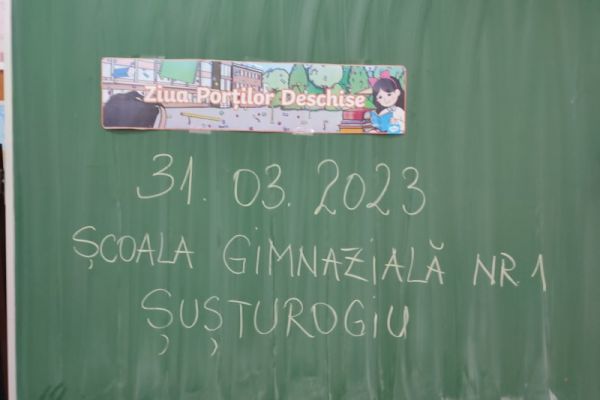 Ziua Porților Deschise
31. 03. 2023
ȘCOALA GIMNAZIALĂ NR. 1
ȘUȘTUROGIU